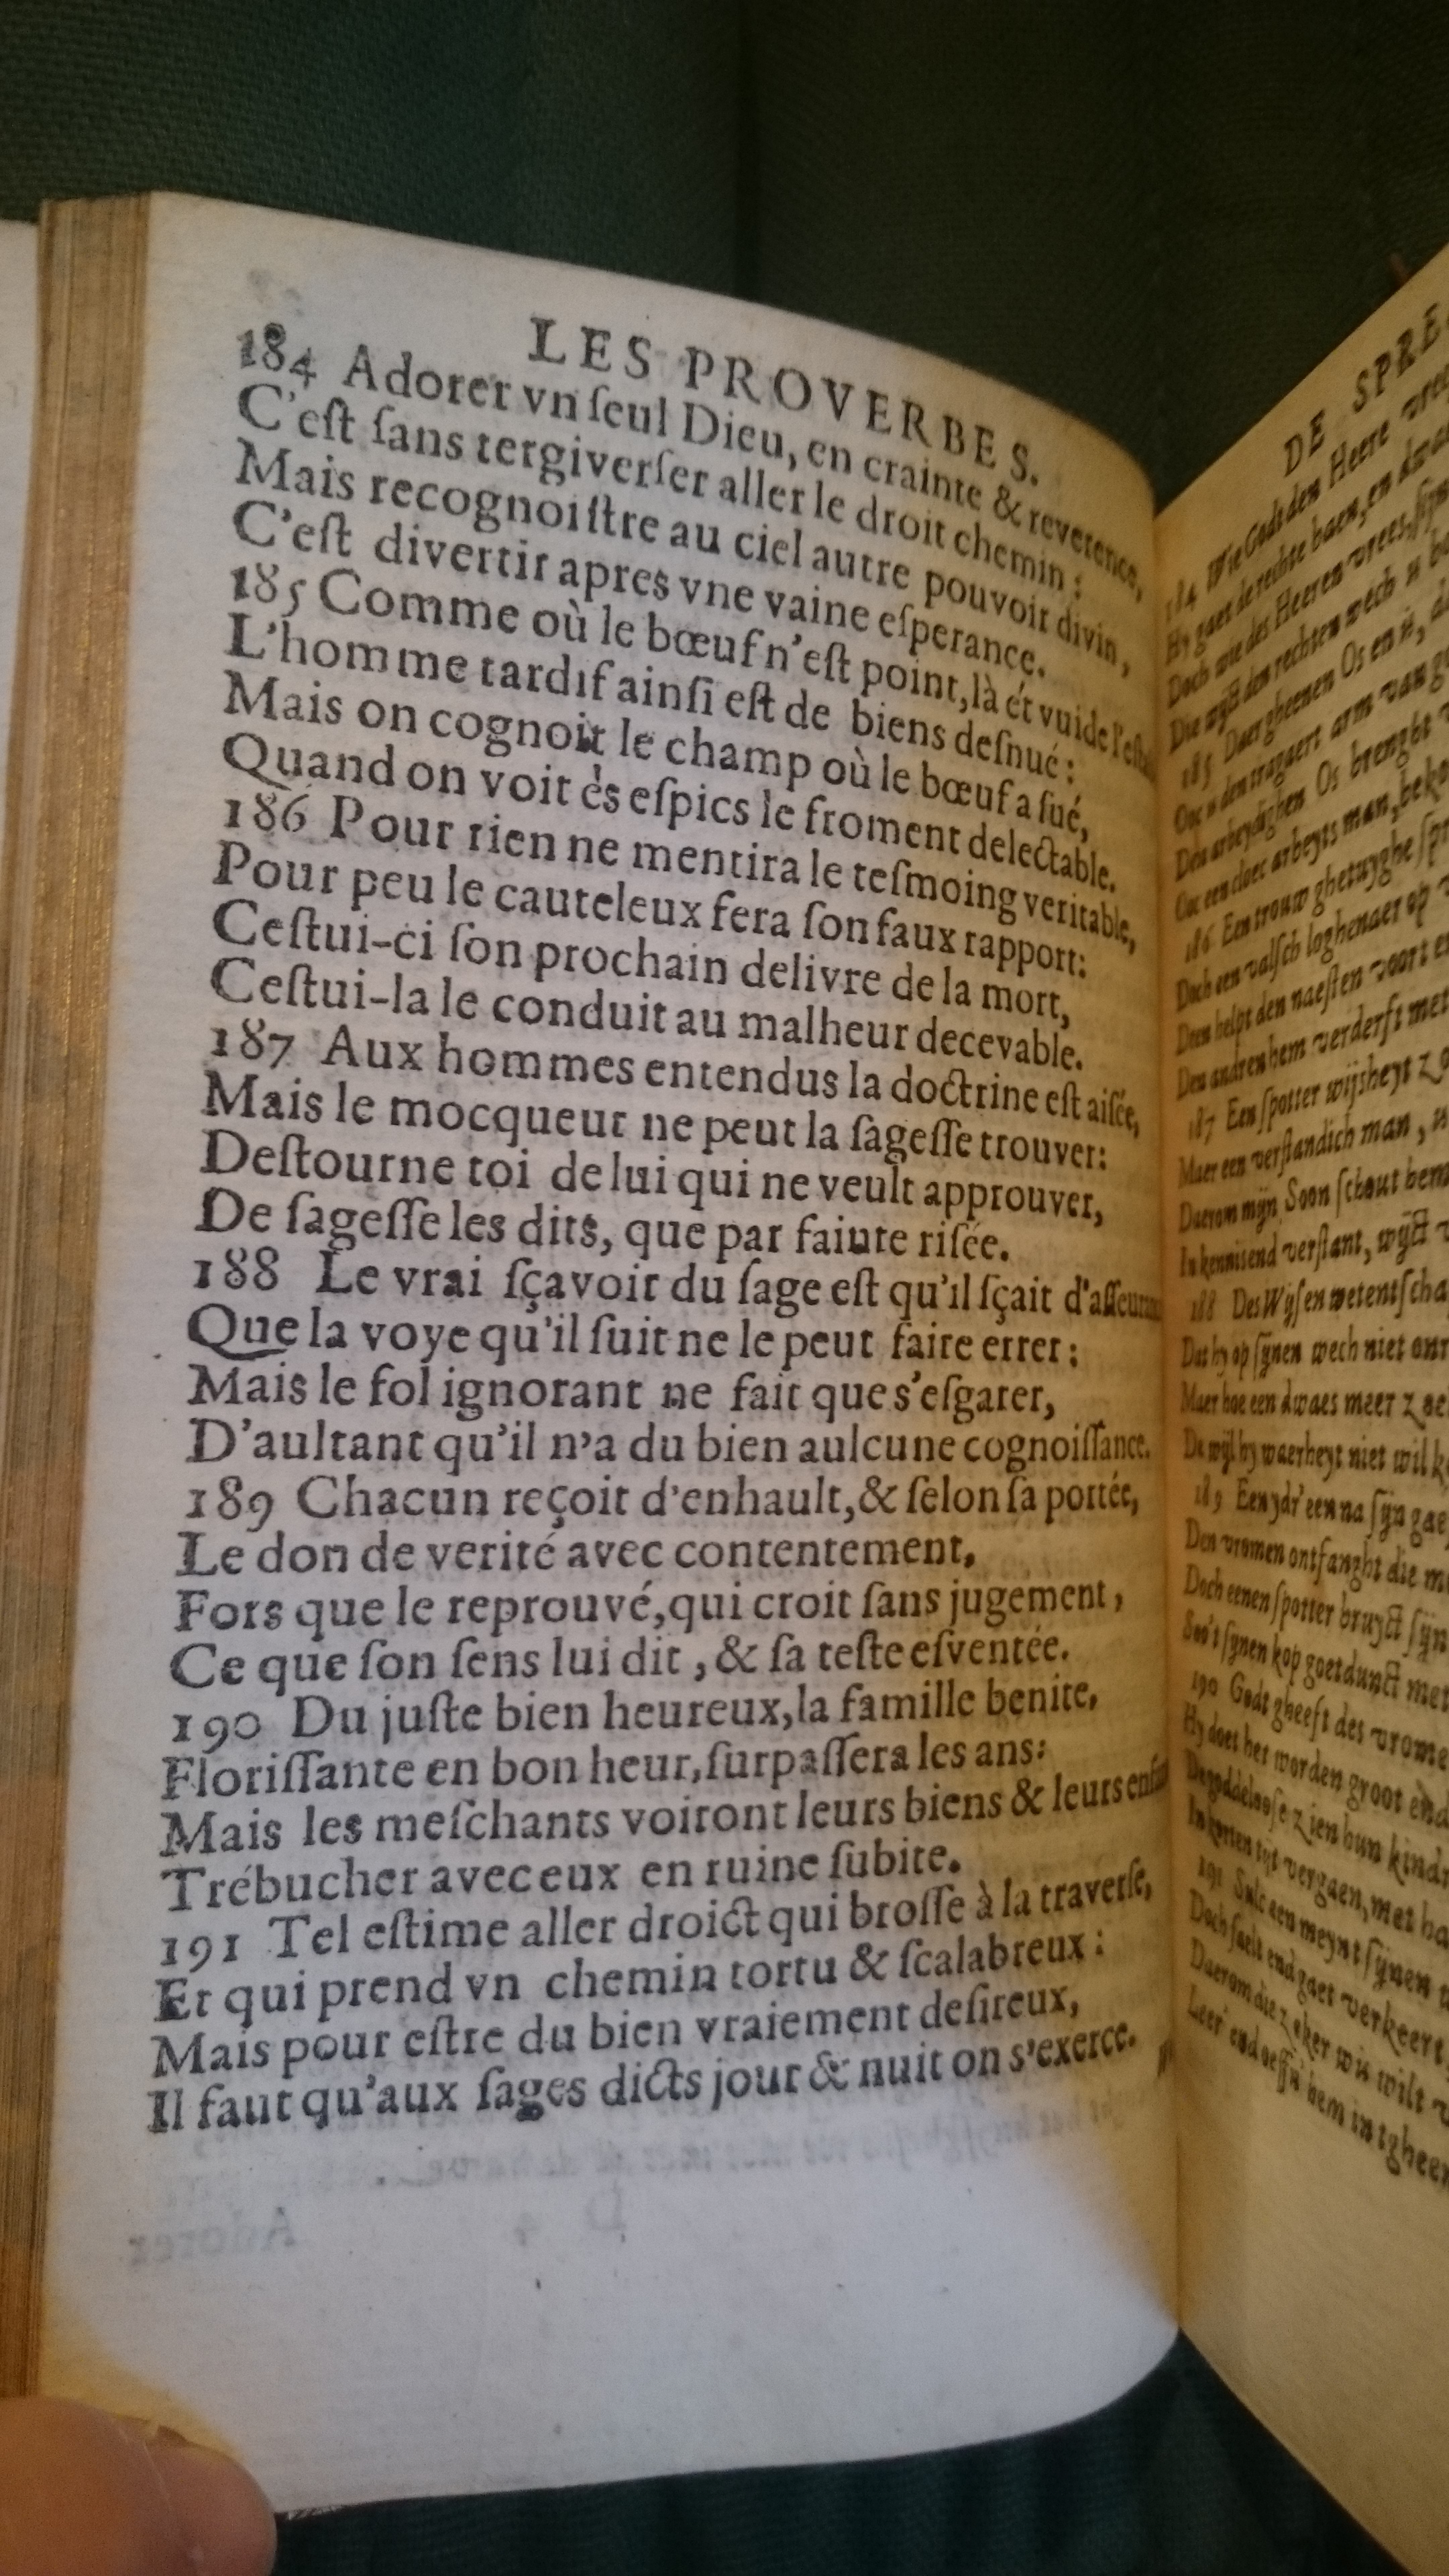 LES PROVERBES.
184 Adorer vn ſeul Dieu, en crainte & reverence,
C'eſt ſans tergiverſer aller le droit chemin:
Mais recognoiſtre au ciel autre pouvoir divin,
C'eſt divertir apres vne vaine eſperance.
185 Comme où le bœuf n'eſt point, là ét vuide l'eſta
L'homme tardif ainſi eſt de biens deſnué:
Mais on cognoit le champ où le bœuf a ſué,
Quand on voit ès eſpics le froment delectable.
186 Pour rien ne mentira le teſmoing veritable,
Pour peu le cauteleux fera ſon faux rapport:
Ceſtui-ci ſon prochain delivre de la mort,
Ceſtui-la le conduit au malheur decevable.
187 Aux hommes entendus la doctrine eſt aiſée,
Mais le mocqueur ne peut la ſageſſe trouver:
Deſtourne toi de lui qui ne veult approuver,
De ſageſſe les dits, que par fainte riſée.
188 Le vrai ſçavoir du ſage eſt qu'il ſçait d'aſſeuran
Que la voye qu'il ſuit ne le peut faire errer:
Mais le fol ignorant ne fait que s'eſgarer,
D'aultant qu'il n'a du bien aulcune cognoiſſance.
189 Chacun reçoit d'enhault, & ſelon ſa portée,
Le don de verité avec contentement,
Fors que le reprouvé, qui croit ſans jugement,
Ce que ſon ſens lui dit, & ſa teſte eſventée.
190 Du juſte bien heureux, la famille benite,
Floriſſante en bon heur, ſurpaſſera les ans:
Mais les meſchants voiront leurs biens & leurs enfan
Trébucher avec eux en ruine ſubite.
191 Tel eſtime aller droict qui broſſe à la traverſe,
Et qui prend vn chemin tortu & ſcalabreux:
Mais pour eſtre du bien vraiement deſireux,
Il faut qu'aux ſages dicts jour & nuit on s'exerce.
DE SPRE
184 Wie Godt den Heere vree
Hy gaet de rechte baen, en dwae
Doch wie des Heeren vrees, ſijn
Die wijckt den rechten wech
185 Daer gheenen Os en is, d
Oock is den tragaert arm van g
Den arbeydighen Os brenght
Ooc een cloec arbeyts man, beko
186 Een trouw ghetuyghe ſpr
Doch een valſch loghenaer op
Deen helpt den naeſten voort
Den andren hem verderft met
187 Een ſpotter wijsheyt zo
Maer een verſtandich man,
Daerom mijn Soon ſchout hem
In kennis end verſtant, wijckt
188 Des Wyſen wetentſcha
Dat hy op ſynen wech niet
Maer hoe een dwaes meer
Dewijl hy waerheyt niet wil
189 Een ydr' een na ſijn gae
Den vromen ontfanght die
Doch eenen ſpotter bruyct ſijn
Soo't ſynen kop goetdunct met
190 Godt gheeft des vrome
Hy doet het worden groot end
De goddelooſe zien hun kind
In korten tijt vergaen, met ha
191 Sulc een meynt ſijnen
Doch faelt end gaet verkeert
Daerom die zeker wis wilt
Leer' end oeffn' hem in tgheen